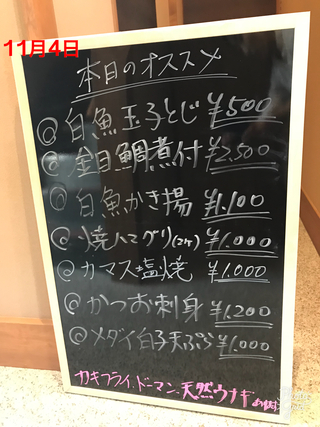 11月4日
本日のオススメ
◎白魚玉子とじ ¥500
◎金目鯛煮付 ¥2,500
◎白魚かき揚 ¥1,100
◎焼ハマグリ(2ケ) ¥1,000
◎カマス塩焼 ¥1,000
◎かつお刺身 ¥1,200
◎メダイ白子天ぷら ¥1,000
カキフライ、ドーマン、天然ウナギ